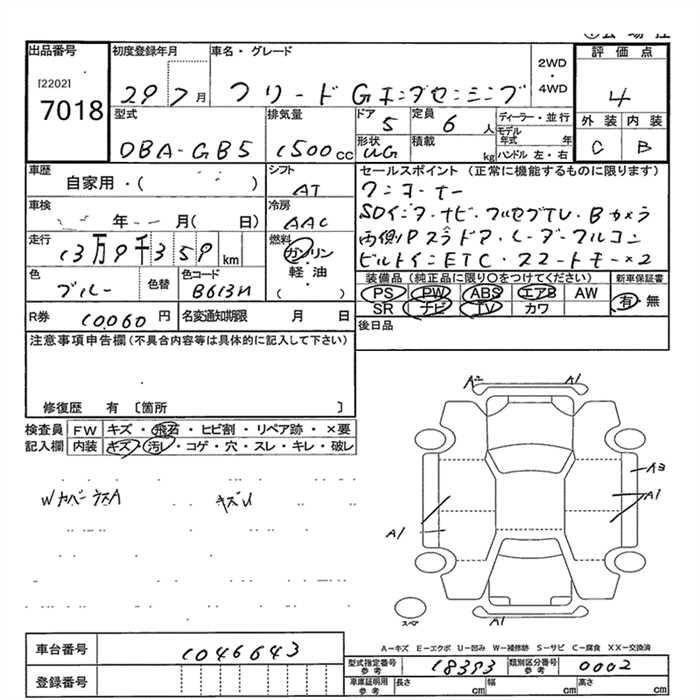 出品番号
[2202]
7018
初度登録年月
29 7月
車名・グレード
フリード Gエアロセンシング
2WD
・
4WD
評価点
4
型式
DBA-GB5
排気量
1500cc
ドア
5
定員
6人
ディーラー・並行
形状
WG
積載
kg
モデル年式 年
ハンドル 左・右
外装 内装
C B
車歴
自家用・( )
シフト
AT
セールスポイント (正常に機能するものに限ります)
ワンオーナー
SDインタナビ・フルセグTV・Bカメラ
両側Pスラドア・レーダークルコン
ビルトインETC・スマートキー×2
車検
年 月( 日)
冷房
AAC
走行
13万9千359km
燃料
ガソリン
・
軽油
( )
色
ブルー
色替
色コード
B613M
装備品 (純正品に限り○をつけてください)
新車保証書
PS PW ABS エアB AW
有・無
SR ナビ TV カワ
R券
10060円
名変通知期限 月 日
後日品
注意事項申告欄(不具合内容等は具体的に記入して下さい)
修復歴 有 〔箇所 〕
検査員
記入欄
FW キズ・飛石・ヒビ割・リペア跡・×要
内装 キズ・汚レ・コゲ・穴・スレ・キレ・破レ
Wカバーウス A
キズU
A2
A1
A3
A1
A1
A1
スペア
A-キズ E-エクボ U-凹み W-補修跡 S-サビ C-腐食 XX-交換済
車台番号
1046643
登録番号
型式指定番号
参考
18393
類別区分番号
参考
0002
車庫証明用
参考
長さ cm
幅 cm
高さ cm